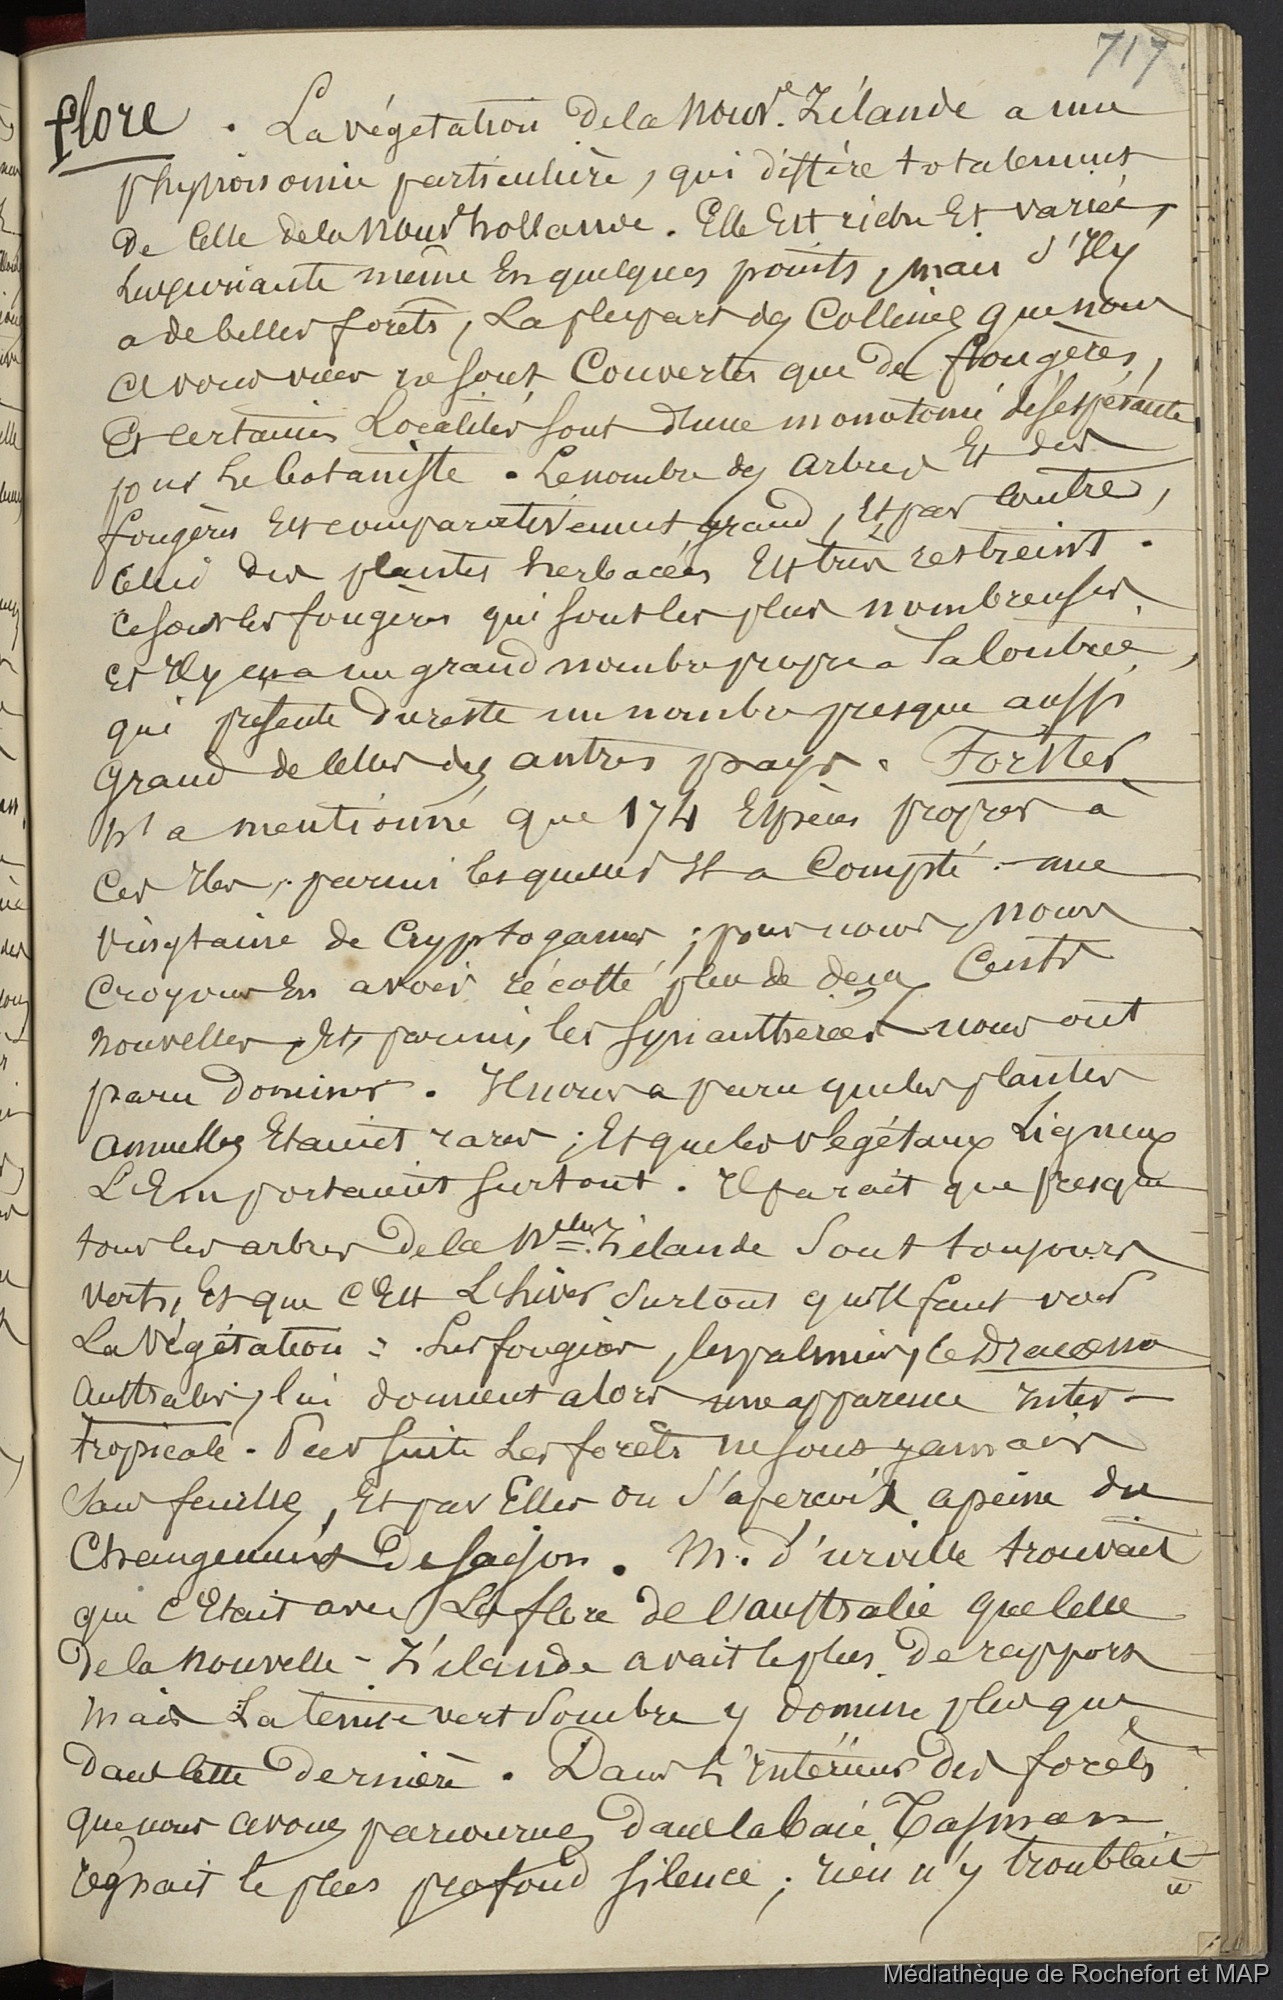 717.
flore . La végétation de la Nouv.e Zélande a une
physionomie particulière, qui diffère totalement
de celle de la Nouv.e hollande. Elle Est riche Et variée,
Luxuriante même En quelques points, mais s'Il y
a de belles forêts, La plupart des Collines que nous
avons vues ne sont Couvertes que de fougères,
Et certaines Localités sont d'une monotonie désespérante
pour Le botaniste. Le nombre des arbres Et des
fougères Est comparativement grand, Et par contre,
Celui des plantes herbacées Est très restreint.
Ce sont les fougères qui sont les plus nombreuses,
et Il y en a un grand nombre propre a La Contrée,
qui présente du reste un nombre presque aussi
grand de celles des autres pays. Forster
n'a mentionné que 174 Espèces propres à
Ces Iles, parmi lesquelles Il a Compté une
vingtaine de Cryptogames ; pour nous, nous
Croyons En avoir récolté plus de deux Cents
nouvelles, Et, parmi, les synanthérées nous ont
paru dominer. Il nous a paru que les plantes
annuelles Etaient rares ; Et que les végétaux Ligneux
L'Emportaient surtout. Il parait que presque
tous les arbres de la Nelle Zélande sont toujours
verts, Et que c'Est L'hiver surtout qu'Il faut voir
La végétation : Les fougères, les palmiers, le Dracoena
australis, lui donnent alors une apparence inter-
tropicale. Par suite Les forêts ne sont jamais
sans feuilles, Et par Elles on s'aperçoit a peine du
Changement de saison. M. d'urville trouvait
que c'Etait avec La flore de l'australie que celle
de la Nouvelle-Zélande avait le plus de rapport
mais La teinte vert sombre y domine plus que
dans cette dernière. Dans L'Intérieur des forêts
que nous avons parcourues dans la baie Tasman
régnait le plus profond silence ; rien n'y troublait
Médiathèque de Rochefort et MAP